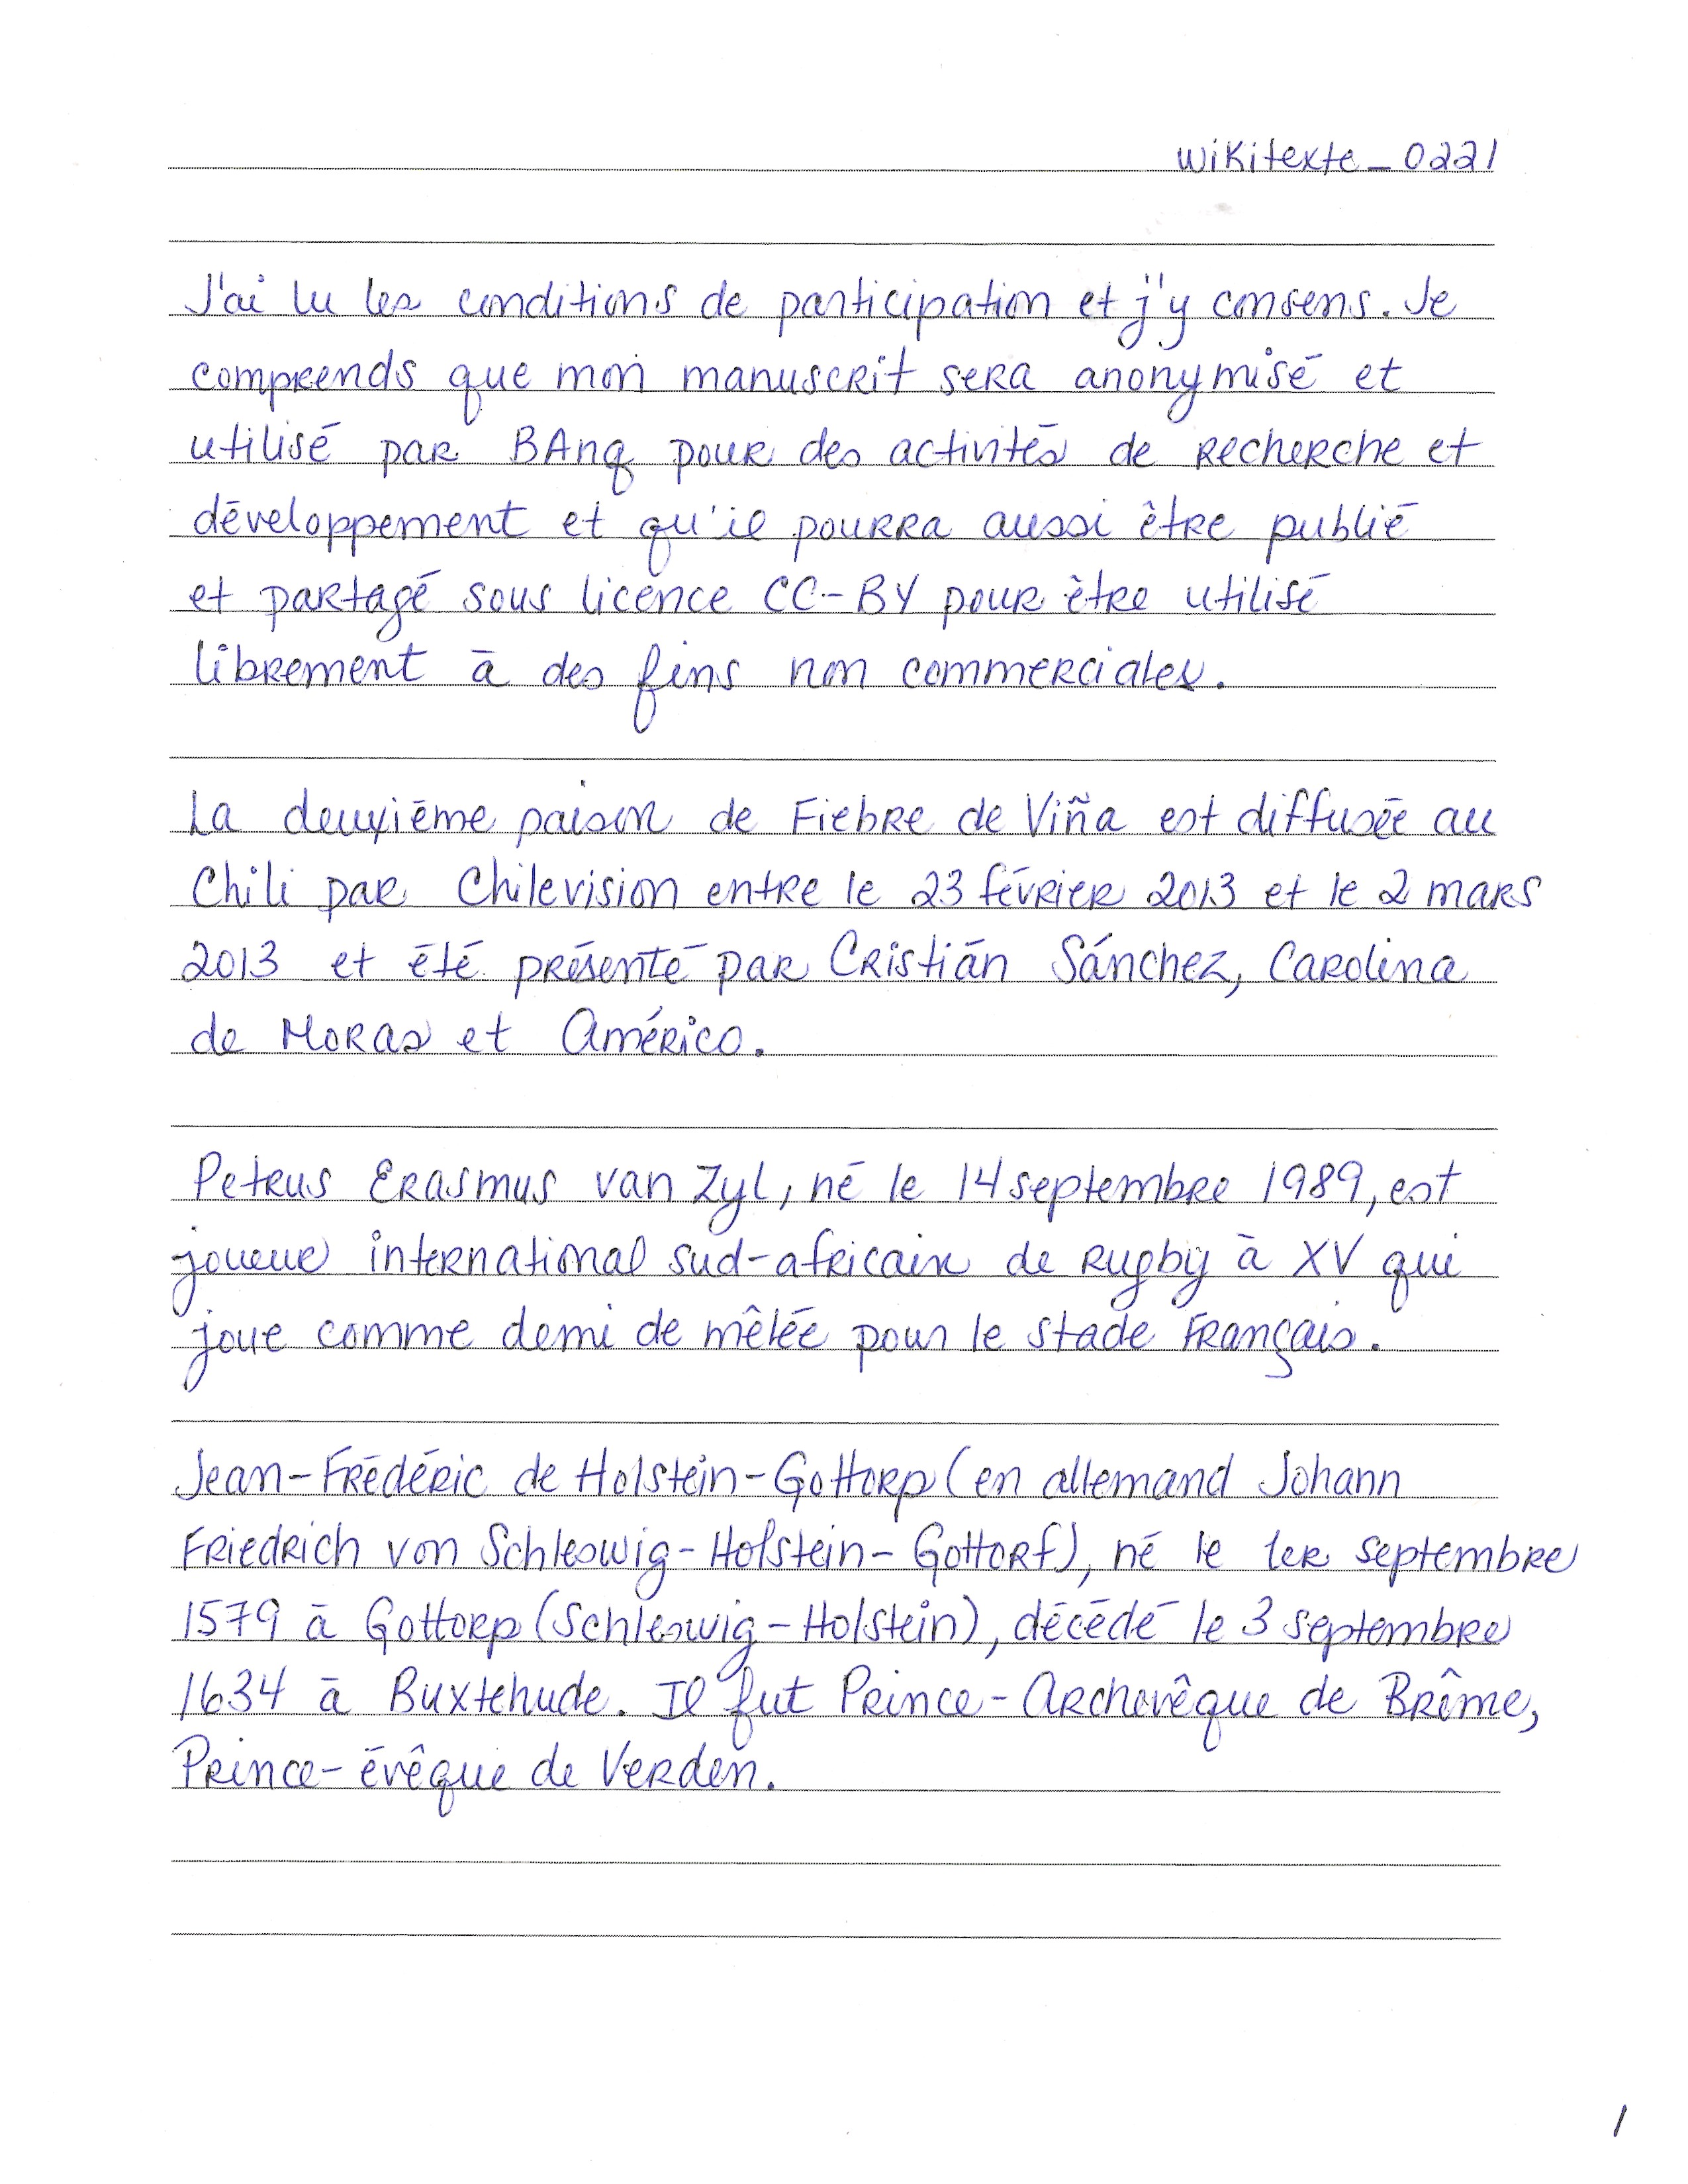 wikitexte_0221
J'ai lu les conditions de participation et j'y consens. Je
comprends que mon manuscrit sera anonymisé et
utilisé par BAnq pour des activités de recherche et
développement et qu'il pourra aussi être publié
et partagé sous licence CC-BY pour être utilisé
librement à des fins non commerciales.
La deuxième saison de Fiebre de Viña est diffusée au
Chili par Chilevision entre le 23 février 2013 et le 2 mars
2013 et été présenté par Cristián Sánchez, Carolina
de Moras et Américo.
Petrus Erasmus van Zyl, né le 14 septembre 1989, est
joueur international sud-africain de rugby à XV qui
joue comme demi de mêlée pour le stade Français.
Jean-Frédéric de Holstein-Gottorp (en allemand Johann
Friedrich von Schleswig-Holstein-Gottorf), né le 1er septembre
1579 à Gottorp (Schleswig-Holstein), décédé le 3 septembre
1634 à Buxtehude. Il fut Prince-Archevêque de Brême,
Prince-évêque de Verden.
1